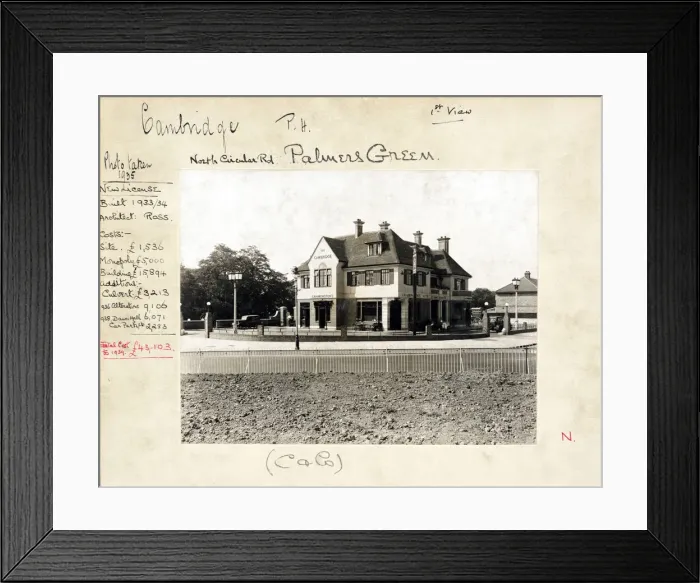 Cambridge P.H. 1st View
North Circular Rd. Palmers Green.
Photo taken
1935
New License
Built 1933/34
Architect: Ross.
Costs:-
Site. £1,536
Monopoly £5,000
Building £15,894
additions:-
Culvert £3213
Alterations 9106
6,071
Car Park 2,283
Total Cost £43,103
N.
(C & Co)